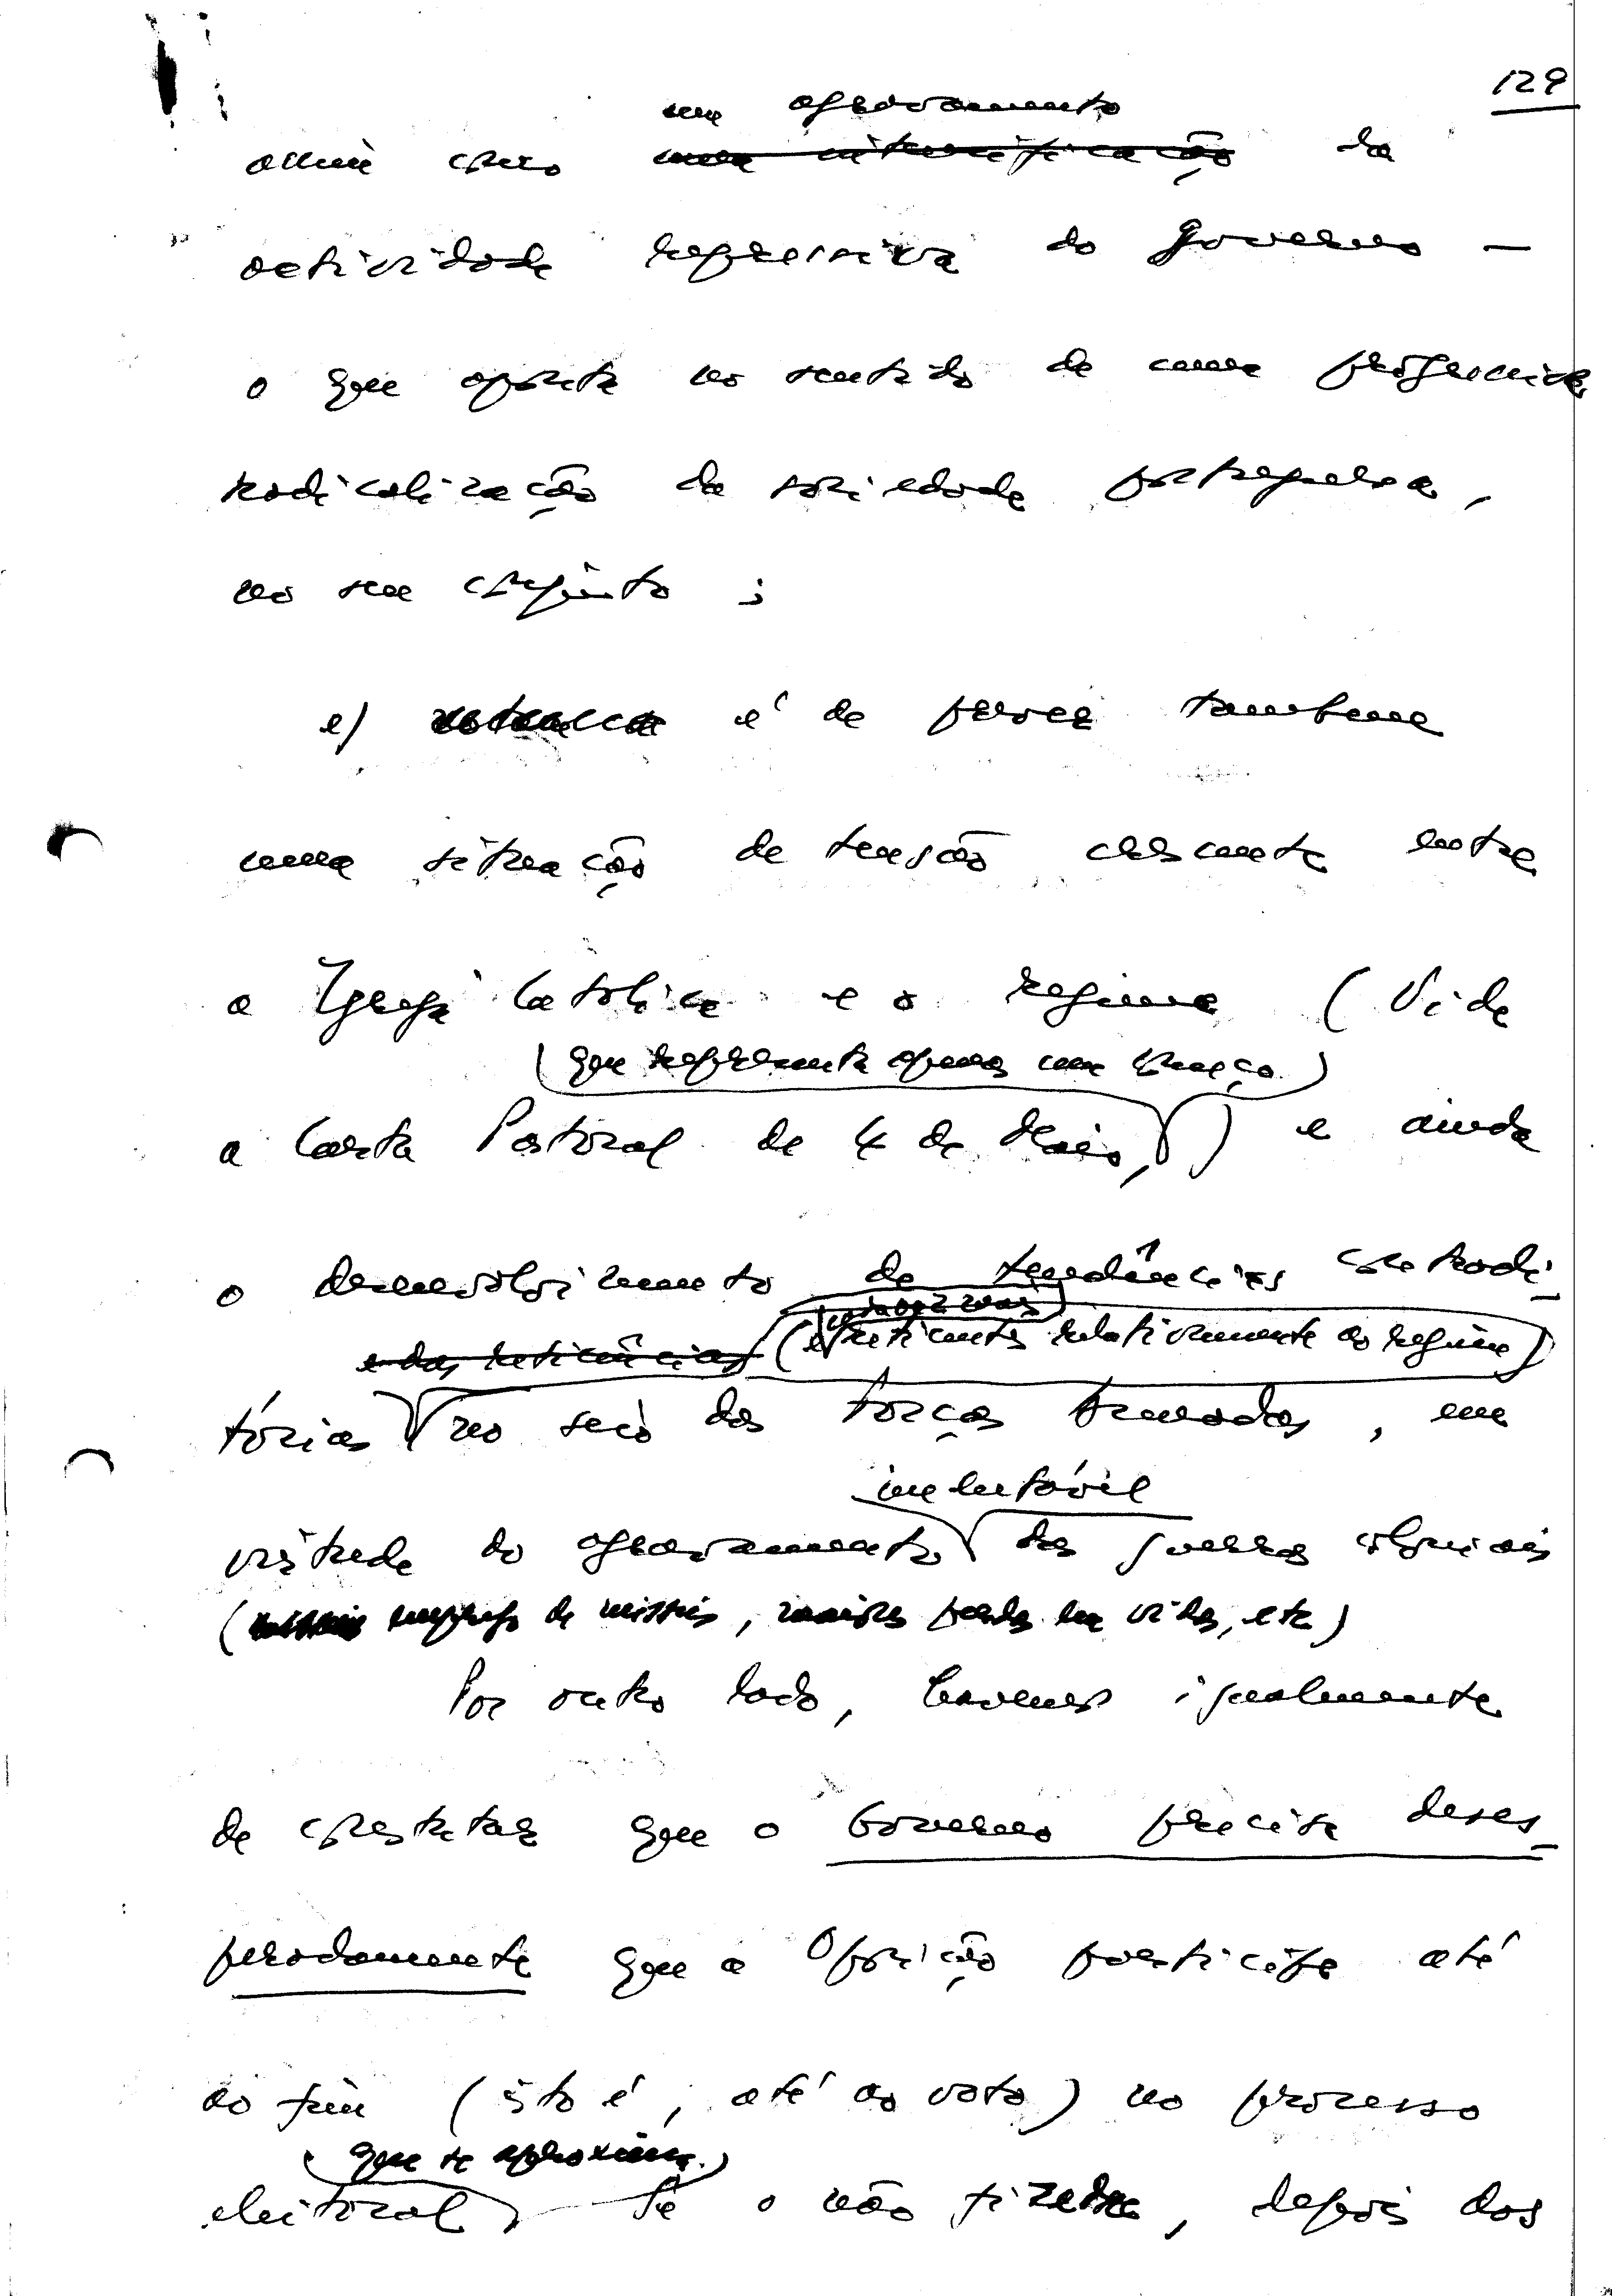 129
um agravamento
assim como uma intensificação da
actividade repressiva do governo —
o que aponta no sentido de uma progressiva
radicalização da sociedade portuguesa,
no seu conjunto;
e) é de prever também
uma situação de tensão crescente entre
a Igreja Católica e o regime (Vide
que representa apenas um começo
a Carta Pastoral de 4 de Maio,) e ainda
o desenvolvimento de tendências contradi-
e das reticências (e reticentes relativamente ao regime)
tórias no seio das Forças Armadas, em
inelutável
virtude do agravamento das guerras coloniais
(emprego de mísseis, maiores perdas em vidas, etc)
Por outro lado, havemos igualmente
de constatar que o Governo precisa deses-
peradamente que a Oposição participe até
ao fim (isto é, até ao voto) no processo
que se aproxima.
eleitoral. Se o não fizesse, depois dos